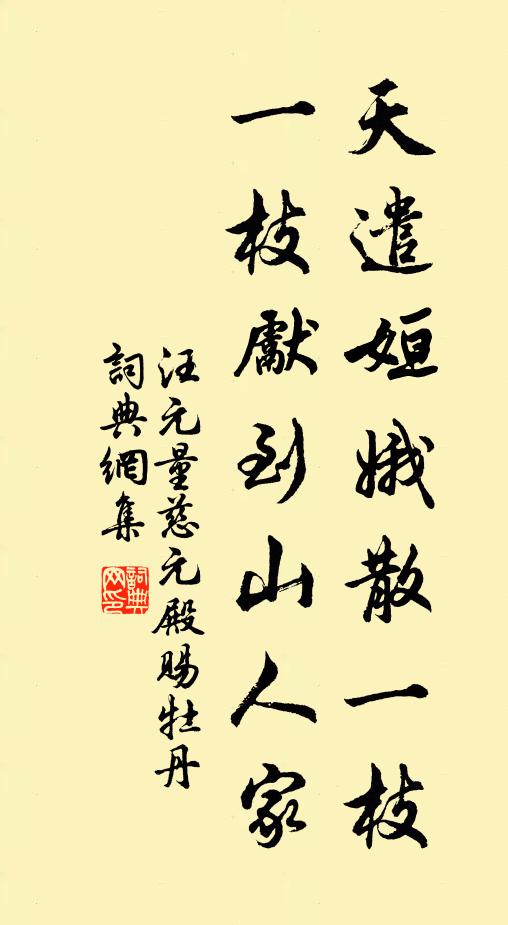 天遣姮娥散一枝
一枝獻到山人家
汪元量慈元殿賜牡丹
詞典網集
詞典
网印